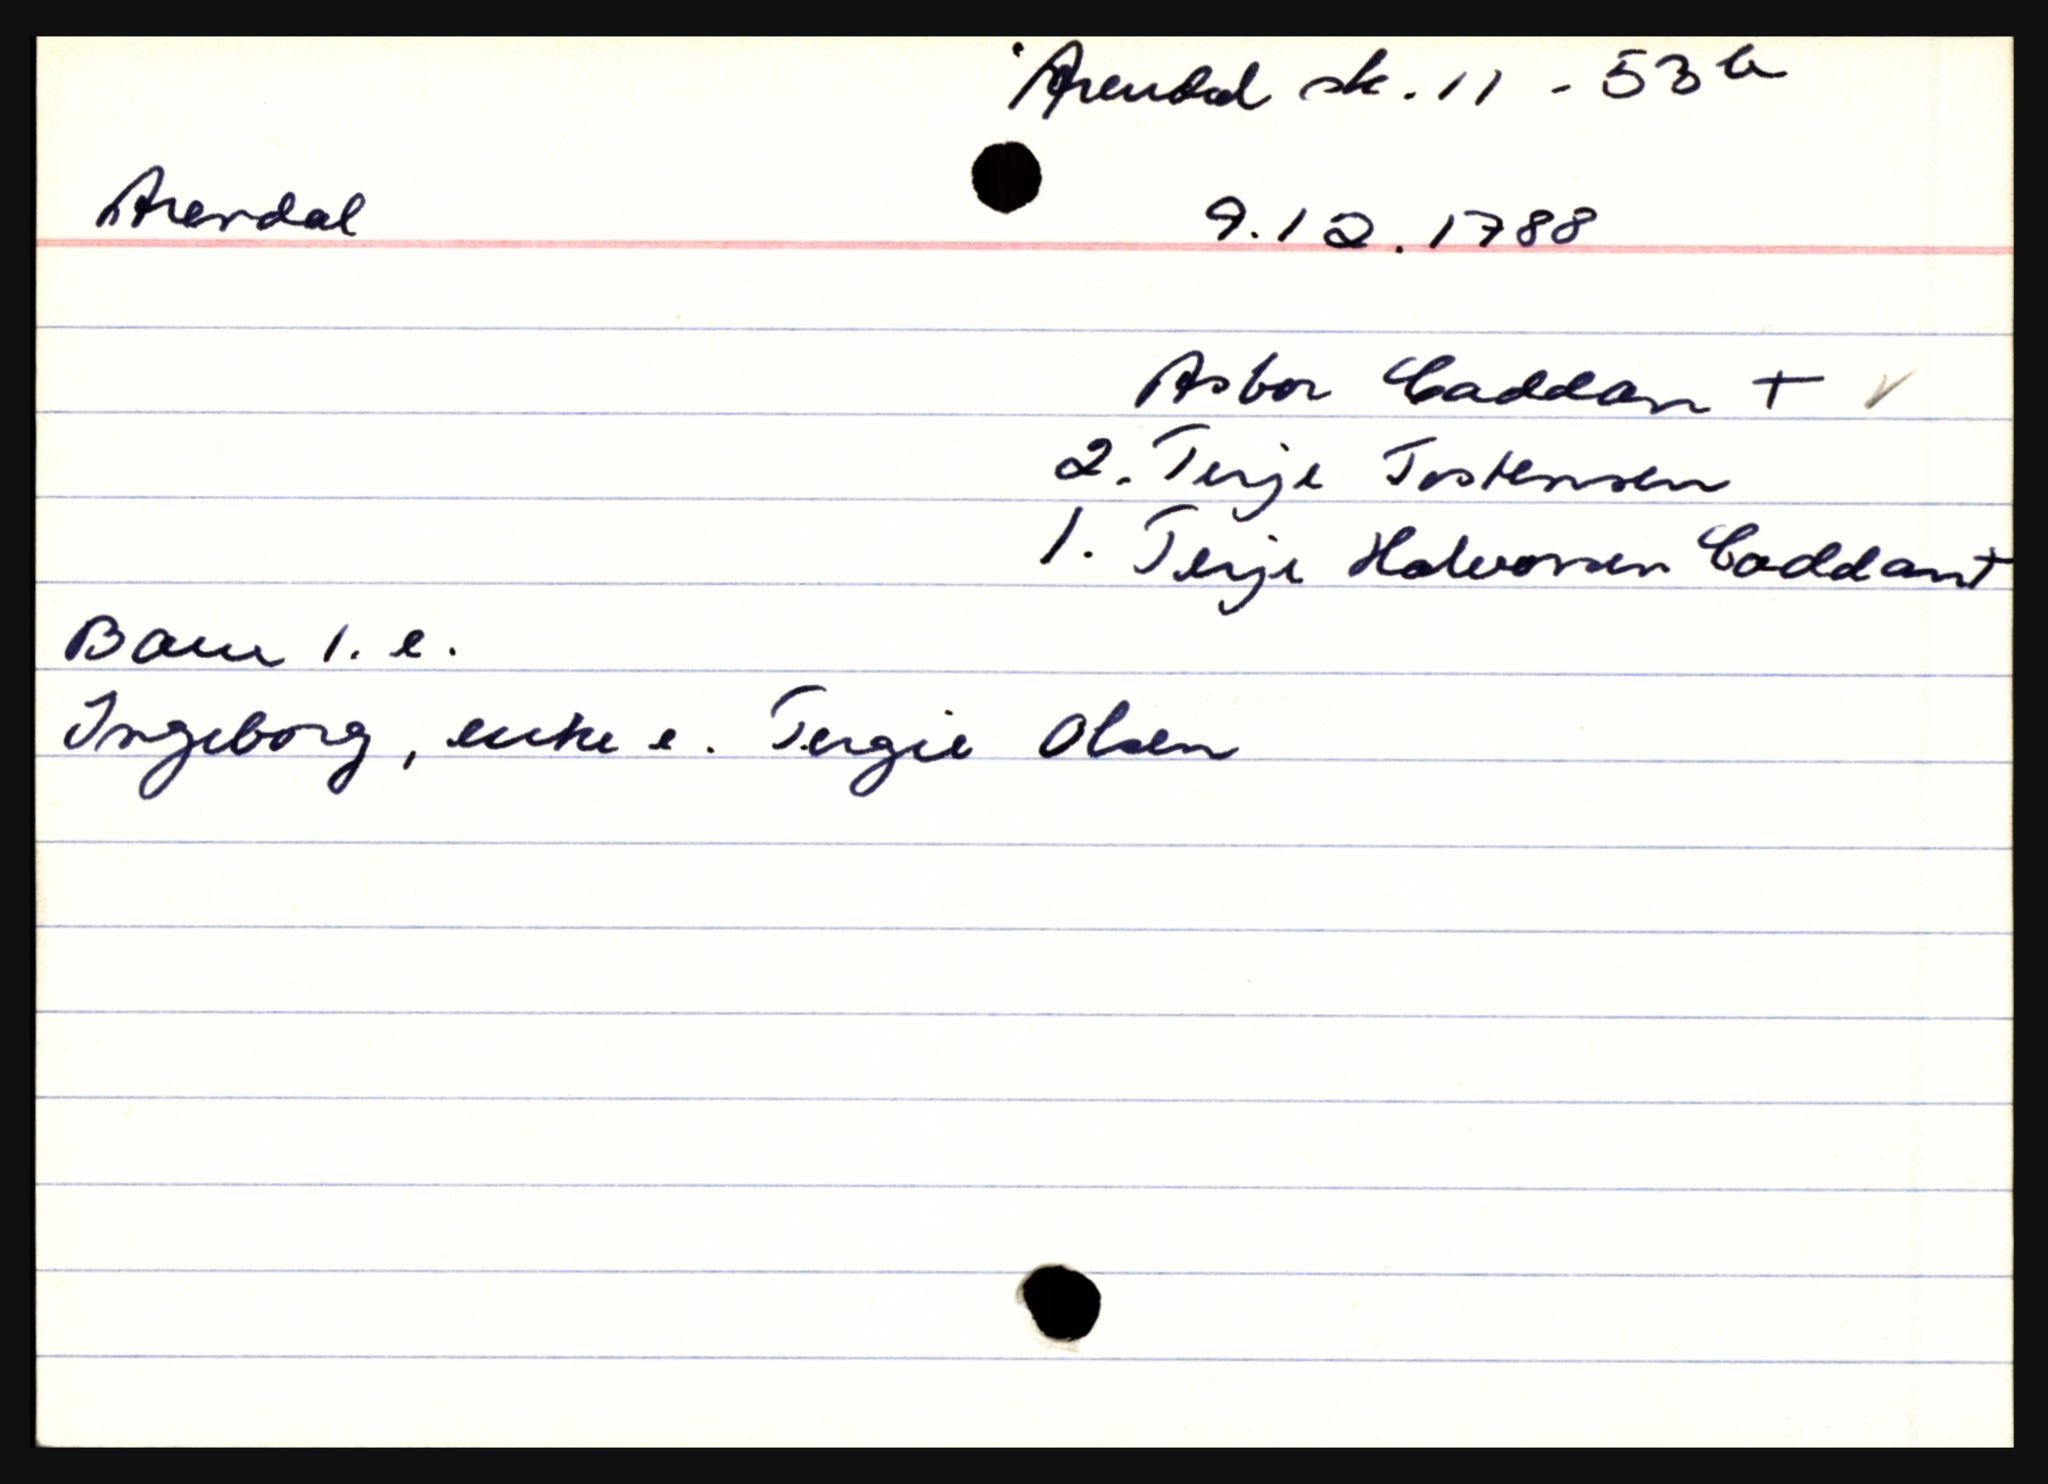 Arendal sk. 11 - 53b
Arendal
9.12.1788
Asbor Caddan +
2. Terje Tostensen
1. Terje Halvorsen Caddan +
Barn 1. e.
Ingeborg, enke e. Tergie Olsen